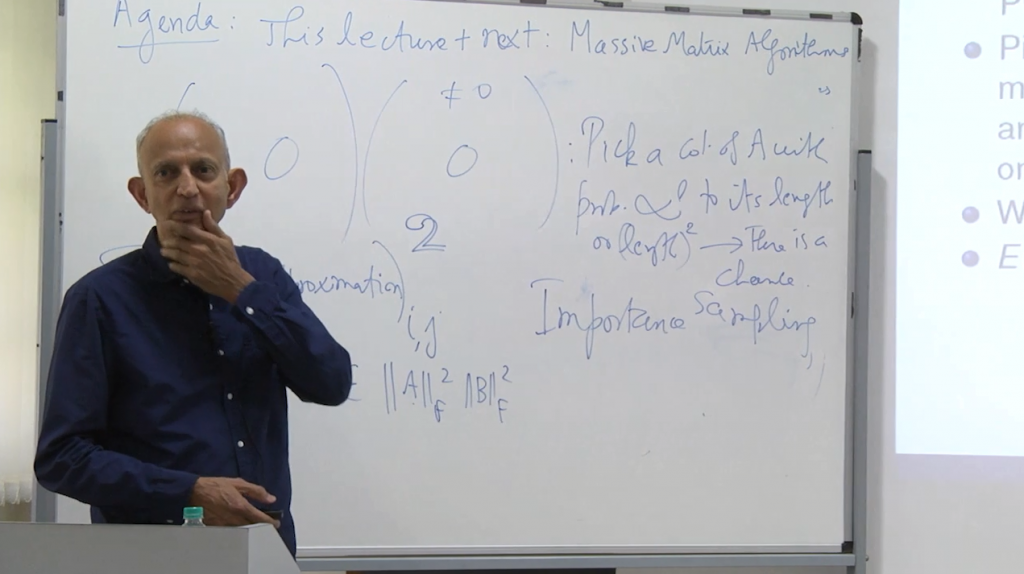 Agenda: This lecture + next: Massive Matrix Algorithms
≠ 0
0 0
: Pick a col. of A with
prob. ∝l to its length
or (length)² → There is a
chance.
2
roximation)
i,j
Importance Sampling,
E ||A||²_F ||B||²_F
P
P
m
an
or
W
E